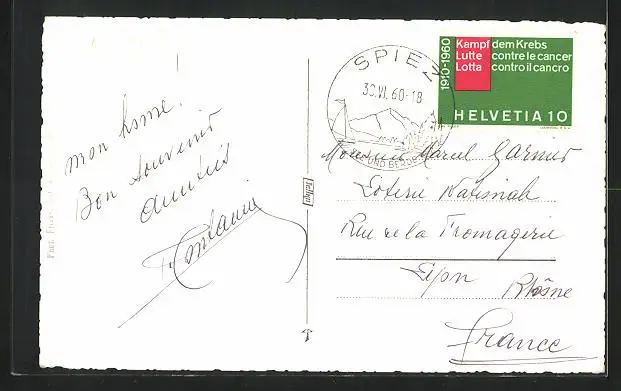 mon home.
Bon souvenir
amitiés
SPIEZ
30.VI.60-18
1910-1960
Kampf dem Krebs
Lutte contre le cancer
Lotta contro il cancro
HELVETIA 10
Monsieur Marcel Garnier
Loterie Nationale
Rue de la Fromagerie
Lyon
Rhône
France